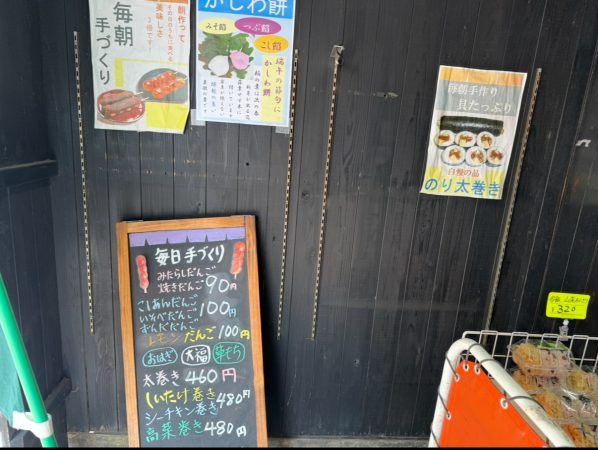 朝作って
その日のうちに食べる
美味しさ
1倍です！
毎朝
手づくり
かしわ餅
みそ餡
つぶ餡
こし餡
端午の節句に
かしわ餅
毎朝手作り
具たっぷり
自慢の品
のり太巻き
毎日手づくり
みたらしだんご
焼きだんご 90円
こしあんだんご
いそべだんご 100円
ずんだだんご
レモンだんご 100円
おはぎ 大福 草もち
太巻き 460円
しいたけ巻き 480円
シーチキン巻き
高菜巻き 480円
¥320